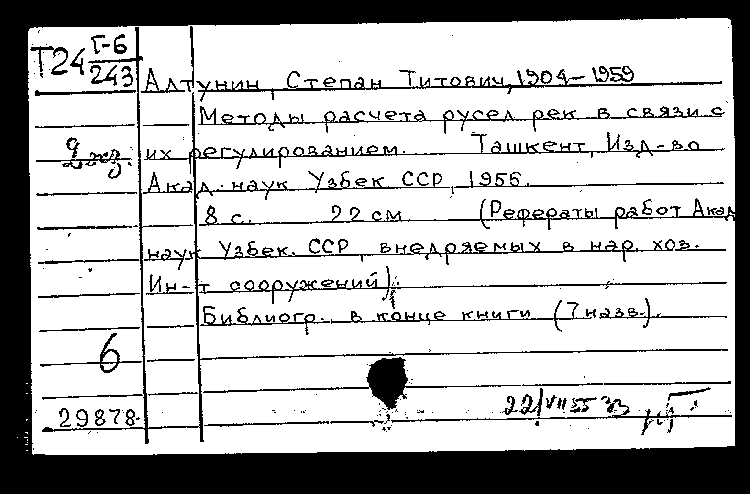 Т24 Г-6
243
Алтунин, Степан Титович, 1904-1959
Методы расчета русел рек в связи с
2 экз
их регулированием. Ташкент, Изд-во
Акад. наук Узбек ССР, 1956.
8 с. 22 см (Рефераты работ Акад
наук Узбек. ССР, внедряемых в нар. хоз.
Ин-т сооружений)
Библиогр. в конце книги (7 назв.).
6
29878.
22/VII 55